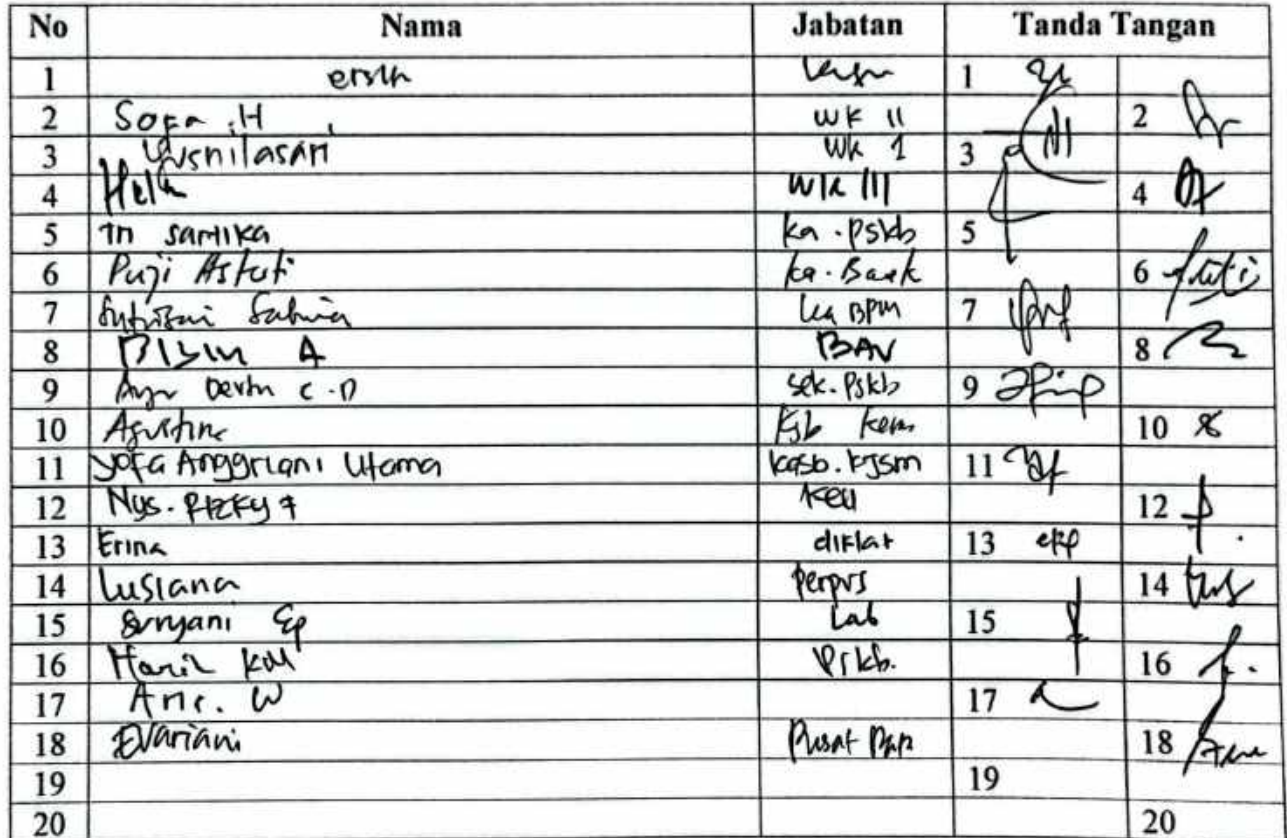 No Nama Jabatan Tanda Tangan
1 1
2 Sofa .H WK II 2
3 Yusnilasari WK 1 3
4 WK III 4
5 Tri Sartika Ka . PSKb 5
6 Puji Astuti Ka . Baak 6
7 Ka BPM 7
8 A 8
9 Ayu C . D Sek. PSKb 9
10 Agustina Kem 10
11 Yofa Anggriani Utama 11
12 Nys. Rizky 7 Keu 12
13 Erina diklat 13
14 Lusiana Perpus 14
15 Suryani Ep Lab 15
16 PSKb. 16
17 W 17
18 Evariani Pusat 18
19 19
20 20